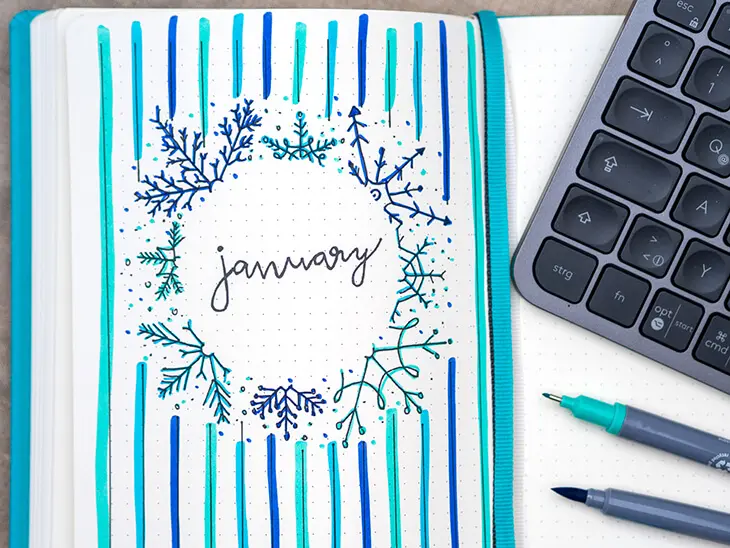 january
esc
!
1
Q
@
A
>
<
Y
strg
fn
opt
start
cmd